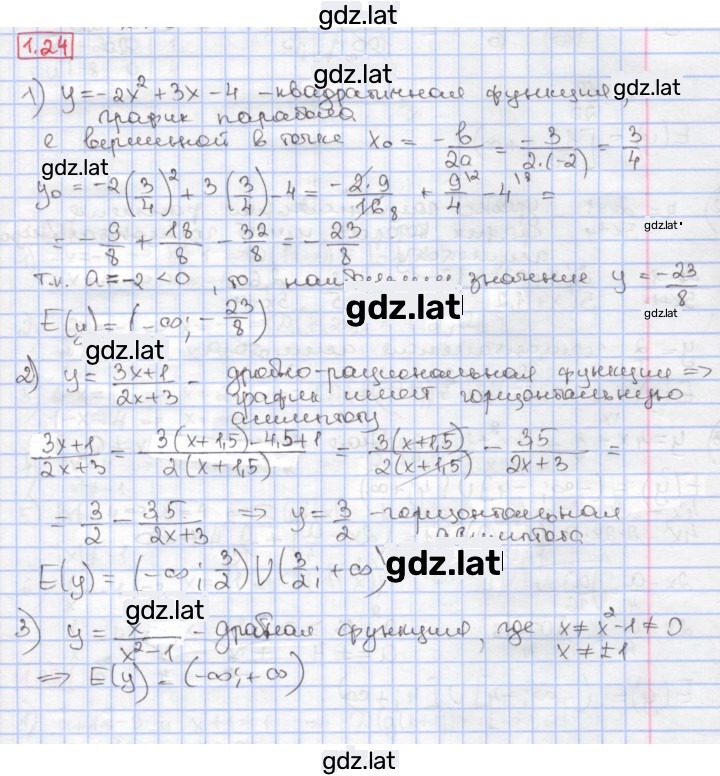 gdz.lat
1.24
gdz.lat
1) y = -2x² + 3x - 4 - квадратичная функция,
график парабола
с вершиной в точке x₀ = -b/2a = -3/2·(-2) = 3/4
gdz.lat
y₀ = -2(3/4)² + 3(3/4) - 4 = -2·9/16 8 + 9/4 - 4 =
gdz.lat
= -9/8 + 18/8 - 32/8 = -23/8
т.к. a = -2 < 0, то значение y = -23/8
gdz.lat
gdz.lat
E(y) = (-∞; -23/8)
gdz.lat
2) y = 3x+1/2x+3 - дробно-рациональная функция ⇒
график имеет горизонтальную
асимптоту
3x+1/2x+3 = 3(x+1,5)-4,5+1/2(x+1,5) = 3(x+1,5)/2(x+1,5) - 35/2x+3 =
= 3/2 - 35/2x+3 ⇒ y = 3/2 - горизонтальная
асимптота
E(y) = (-∞; 3/2) U (3/2; +∞)
gdz.lat
gdz.lat
3) y = x/x²-1 - дробная функция, где x ≠ x²-1 ≠ 0
x ≠ ±1
⇒ E(y) = (-∞; +∞)
gdz.lat